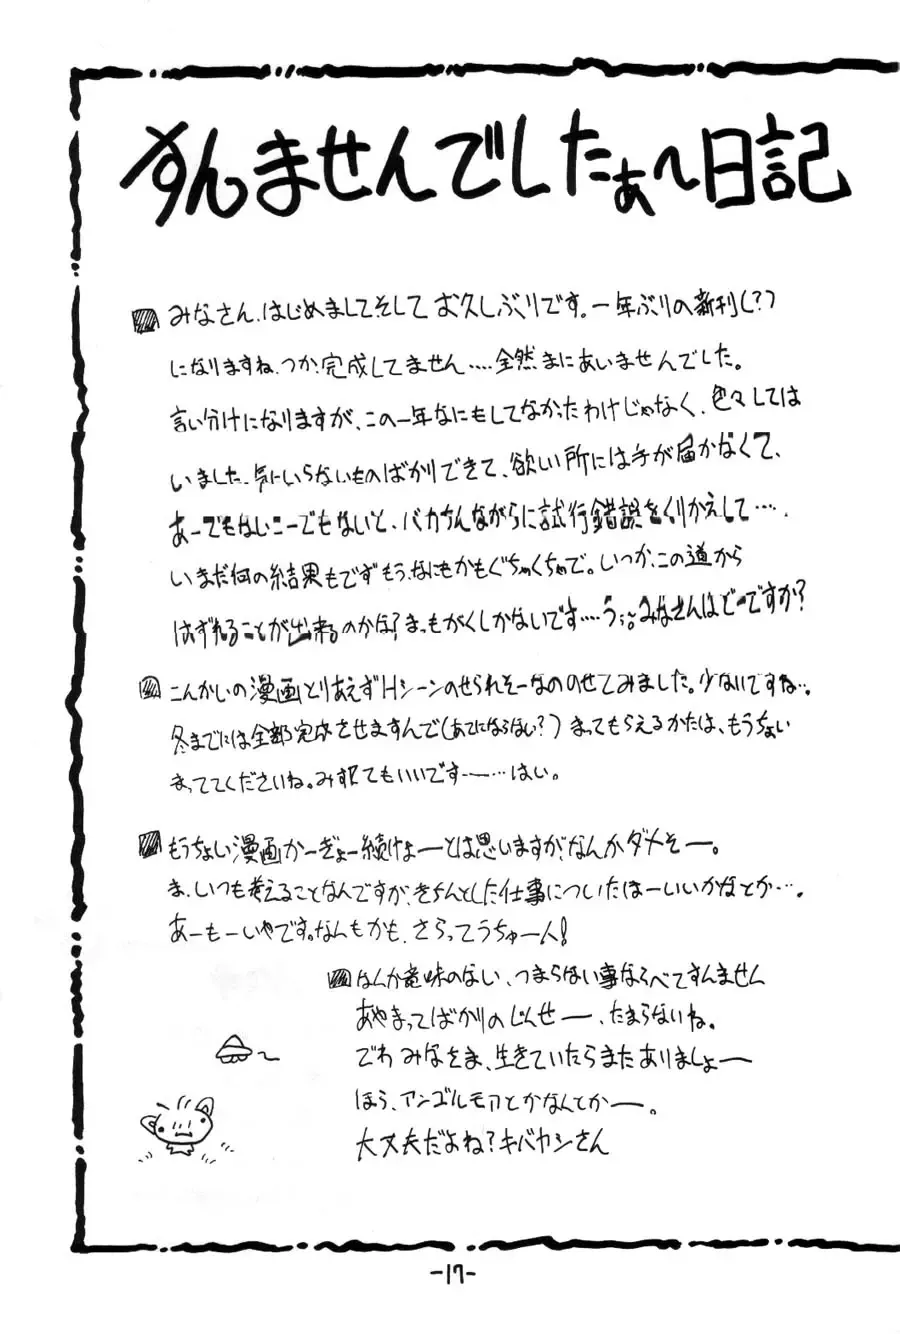 すんませんでしたぁ〜日記
みなさん、はじめまして、そしてお久しぶりです。一年ぶりの新刊(?)
になりますね、つか完成してません‥‥全然まにあいませんでした。
言い分けになりますが、この一年なにもしてなかったわけじゃなく、色々しては
いました。気にいらないものばかりできて、欲しい所には手が届かなくて、
あーでもないこーでもないと、バカちんながらに試行錯誤をくりかえして‥‥、
いまだ何の結果もでずもう、なにもかもぐちゃくちゃで。いつか、この道から
はずれることが出来るのかな?まっもがくしかないです‥‥う:。みなさんはどーですか?
こんかいの漫画とりあえずHシーンのせられそーなののせてみました。少ないですね‥。
冬までには全部完成させますんで(あてにならない?)まってもらえるかたは、もうちょい
まっててくださいね。み捨てもいいです――‥‥はい。
もうちょい漫画かーぎょー続けよーとは思いますが、なんかダメそー。
ま、いつも考えることなんですが、きちんとした仕事についたほーいいかなとか‥‥。
あーもーいやです。なんもかも、さらってうちゅー人!
なんか意味のない、つまらない事ならべてすんません
あやまってばかりのじんせー、たまらないね。
でわ みなさま、生きていたらまたありましょー
ほら、アンゴルモアとかなんとかー。
大丈夫だよね?キバヤシさん
-17-